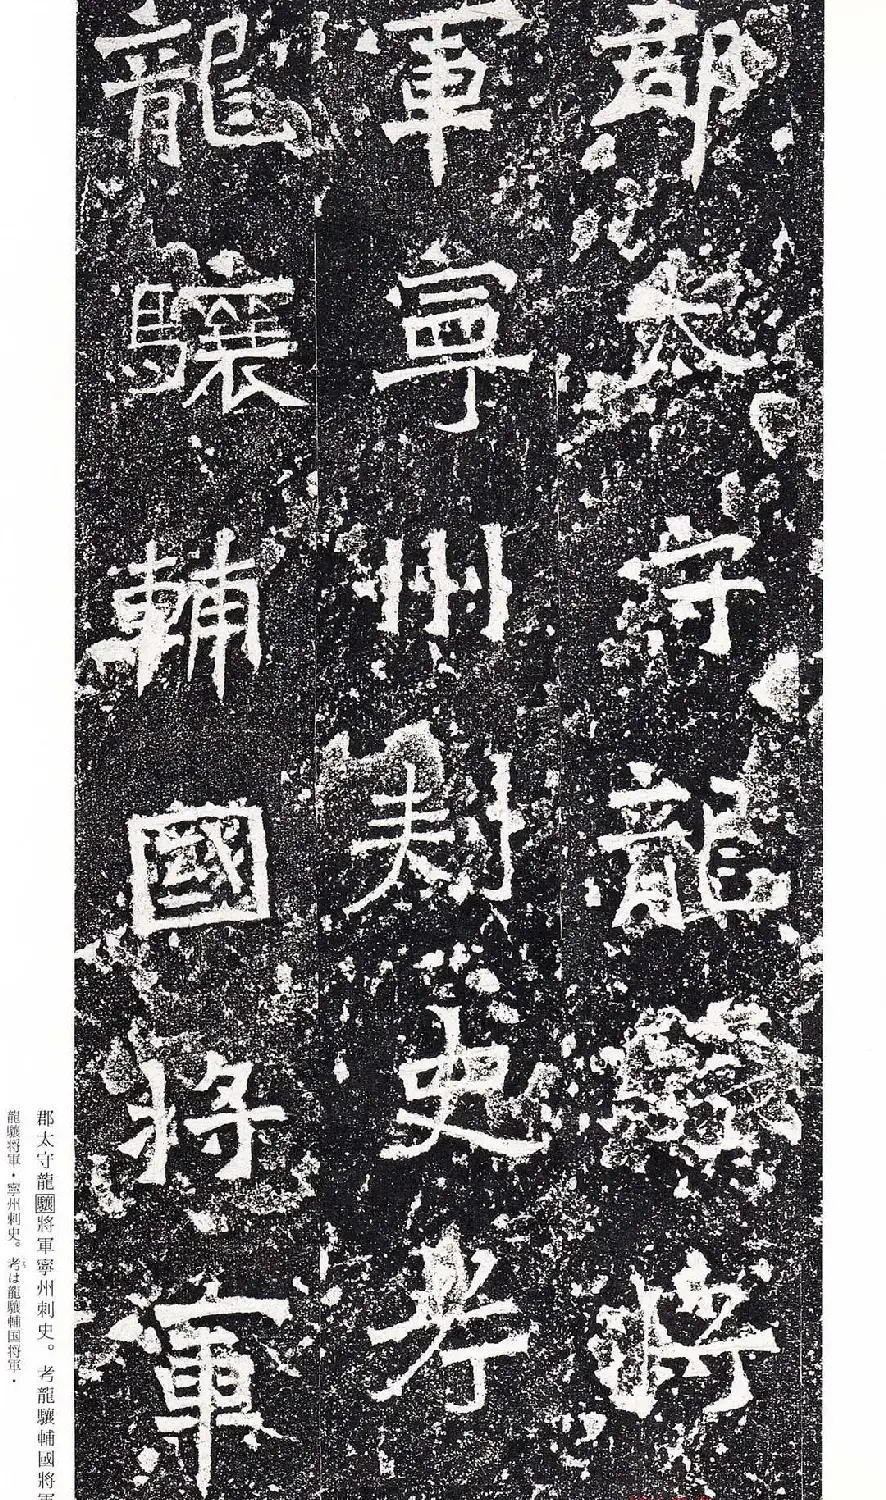 郡太守龍驤將
軍寧州刺史考
龍驤輔國將軍
郡太守龍驤將軍寧州刺史。考龍驤輔國將軍
龍驤将軍・寧州刺史。考は龍驤輔国将軍・